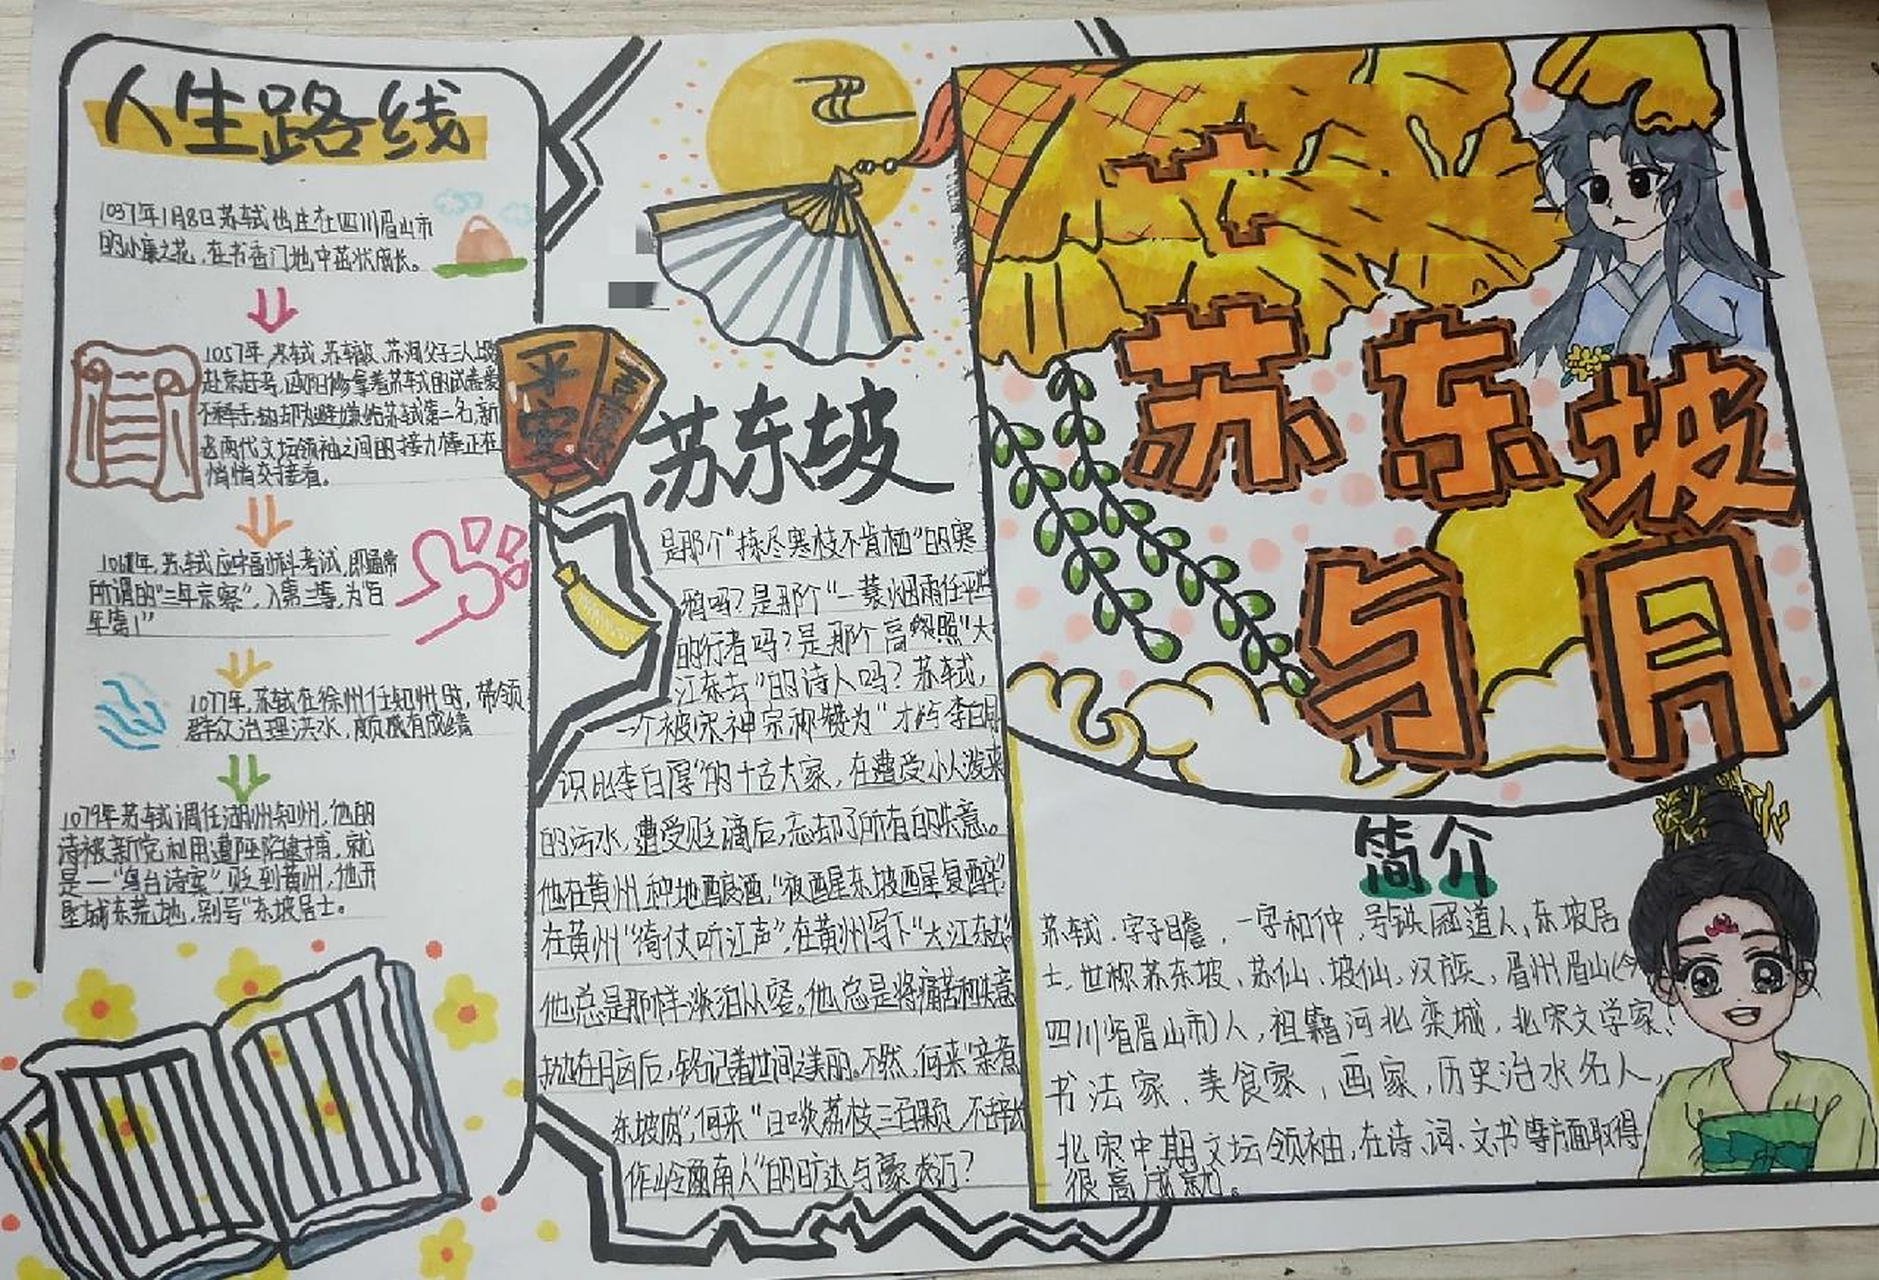 人生路线
1037年1月8日苏轼出生在四川眉山市
的小康之花，在书香门地中茁状成长。
1057年，苏轼、苏辙、苏洵父子三人
赴京赶考，欧阳修拿着苏轼的试卷爱
不释手，却为避嫌给苏轼第二名，新
老两代文坛领袖之间的接力棒正在
悄悄交接着。
年，苏轼应中制科考试，即通常
所谓的"三年京察"，入第三等，为"百
年第1"
1077年，苏轼在徐州任知州时，带领
群众治理洪水，颇感有成绩
1079年苏轼调任湖州知州，他的
诗被新党利用遭陷逮捕，就
是一"乌台诗案"，贬到黄州，他开
垦城东荒地，别号"东坡居士。
平安
苏东坡
是那个"拣尽寒枝不肯栖"的寒
鸦吗？是那个"一蓑烟雨任平
的行者吗？是那个高 "大
江东去"的诗人吗？苏轼，
一个被宋神宗称赞为"才与李白
识比李白厚"的千古大家，在遭受小人泼来
的污水，遭受贬谪后，忘却了所有的失意。
他在黄州种地酿酒，"夜酉星东坡酉星复醉"
在黄州"倚仗听江声"，在黄州写下"大江东去"
他总是那样淡泊从容。他总是将痛苦和失意
抛在月囟后，铭记着世间之美丽。不然，何来"亲煮
东坡肉"，何来"日啖荔枝三百颗，不辞长
作岭南人"的旷达与豪迈？
苏东坡
与月
简介
苏轼，字子瞻，一字和仲，号铁冠道人、东坡居
士，世称苏东坡、苏仙、坡仙，汉族，眉州眉山(今
四川省眉山市)人，祖籍河北栾城，北宋文学家、
书法家、美食家，画家，历史治水名人，
北宋中期文坛领袖，在诗、词、文书等方面取得
很高成就。